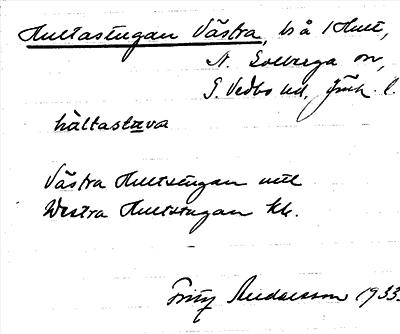 Hultastugan Västra, bs å 1 Hult,
N. Solberga sn,
S. Vedbo hd, Jönk. l.
hàltastᴜva
Västra Hultstugan
Westra Hultstugan kk.
Fritz Andersson 1933.